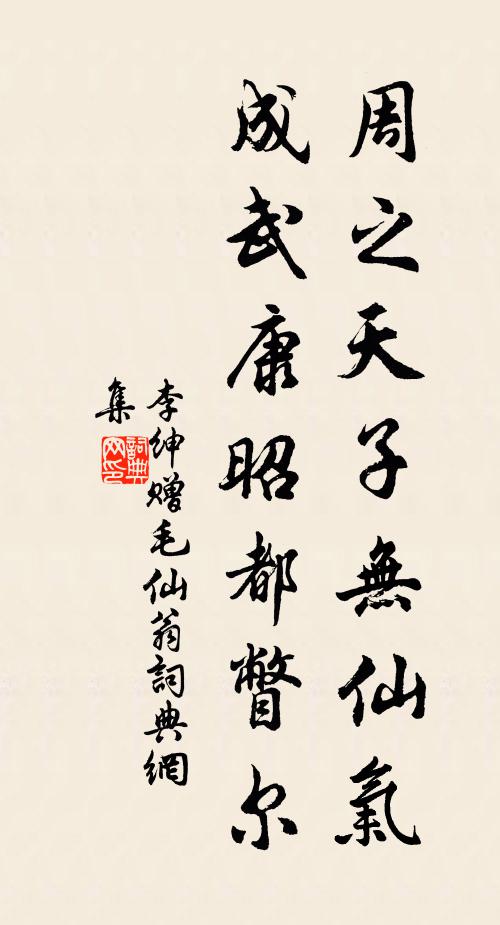 周之天子無仙氣
成武康昭都瞥尔
李紳贈毛仙翁詞典網
集
詞典
网印